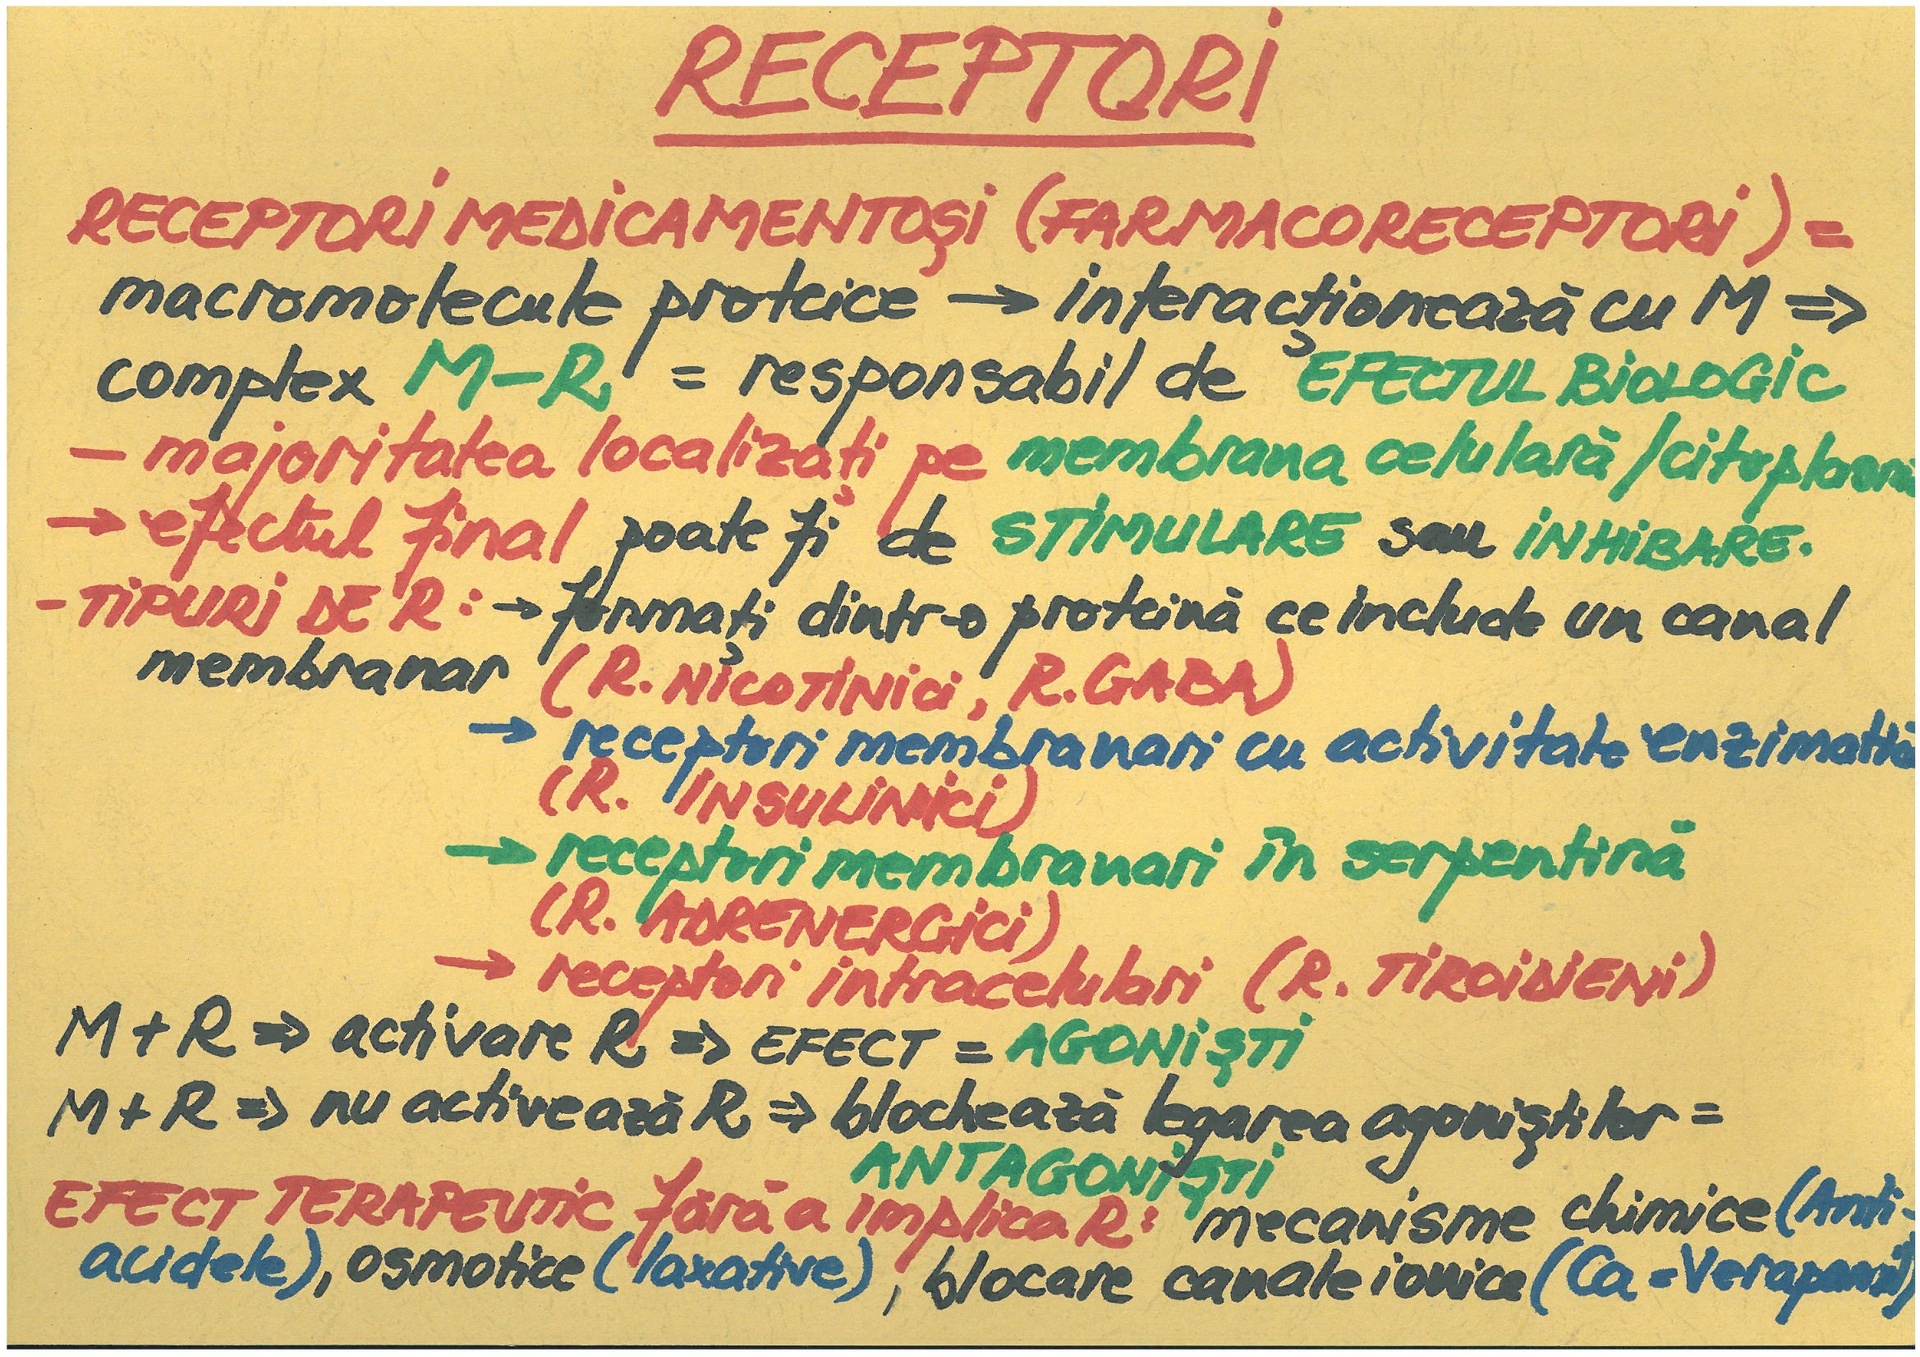 RECEPTORI
RECEPTORI MEDICAMENTOȘI (FARMACORECEPTORI) =
macromolecule proteice → interacționează cu M =>
complex M-R = responsabil de EFECTUL BIOLOGIC
- majoritatea localizați pe membrana celulară/
→ efectul final poate fi de STIMULARE sau INHIBARE.
- TIPURI DE R: → formați dintr-o proteină ce include un canal
membranar (R. NICOTINICI, R. GABA)
→ receptori membranari cu activitate enzimatică
(R. INSULINICI)
→ receptori membranari în serpentină
(R. ADRENERGICI)
→ receptori intracelulari (R. TIROIDIENI)
M + R => activare R => EFECT = AGONIȘTI
M + R => nu activează R => blochează legarea agoniștilor =
ANTAGONIȘTI
EFECT TERAPEUTIC fără a implica R: mecanisme chimice (Anti-
acidele), osmotice (laxative), blocare canale ionice (Ca = Verapamil)